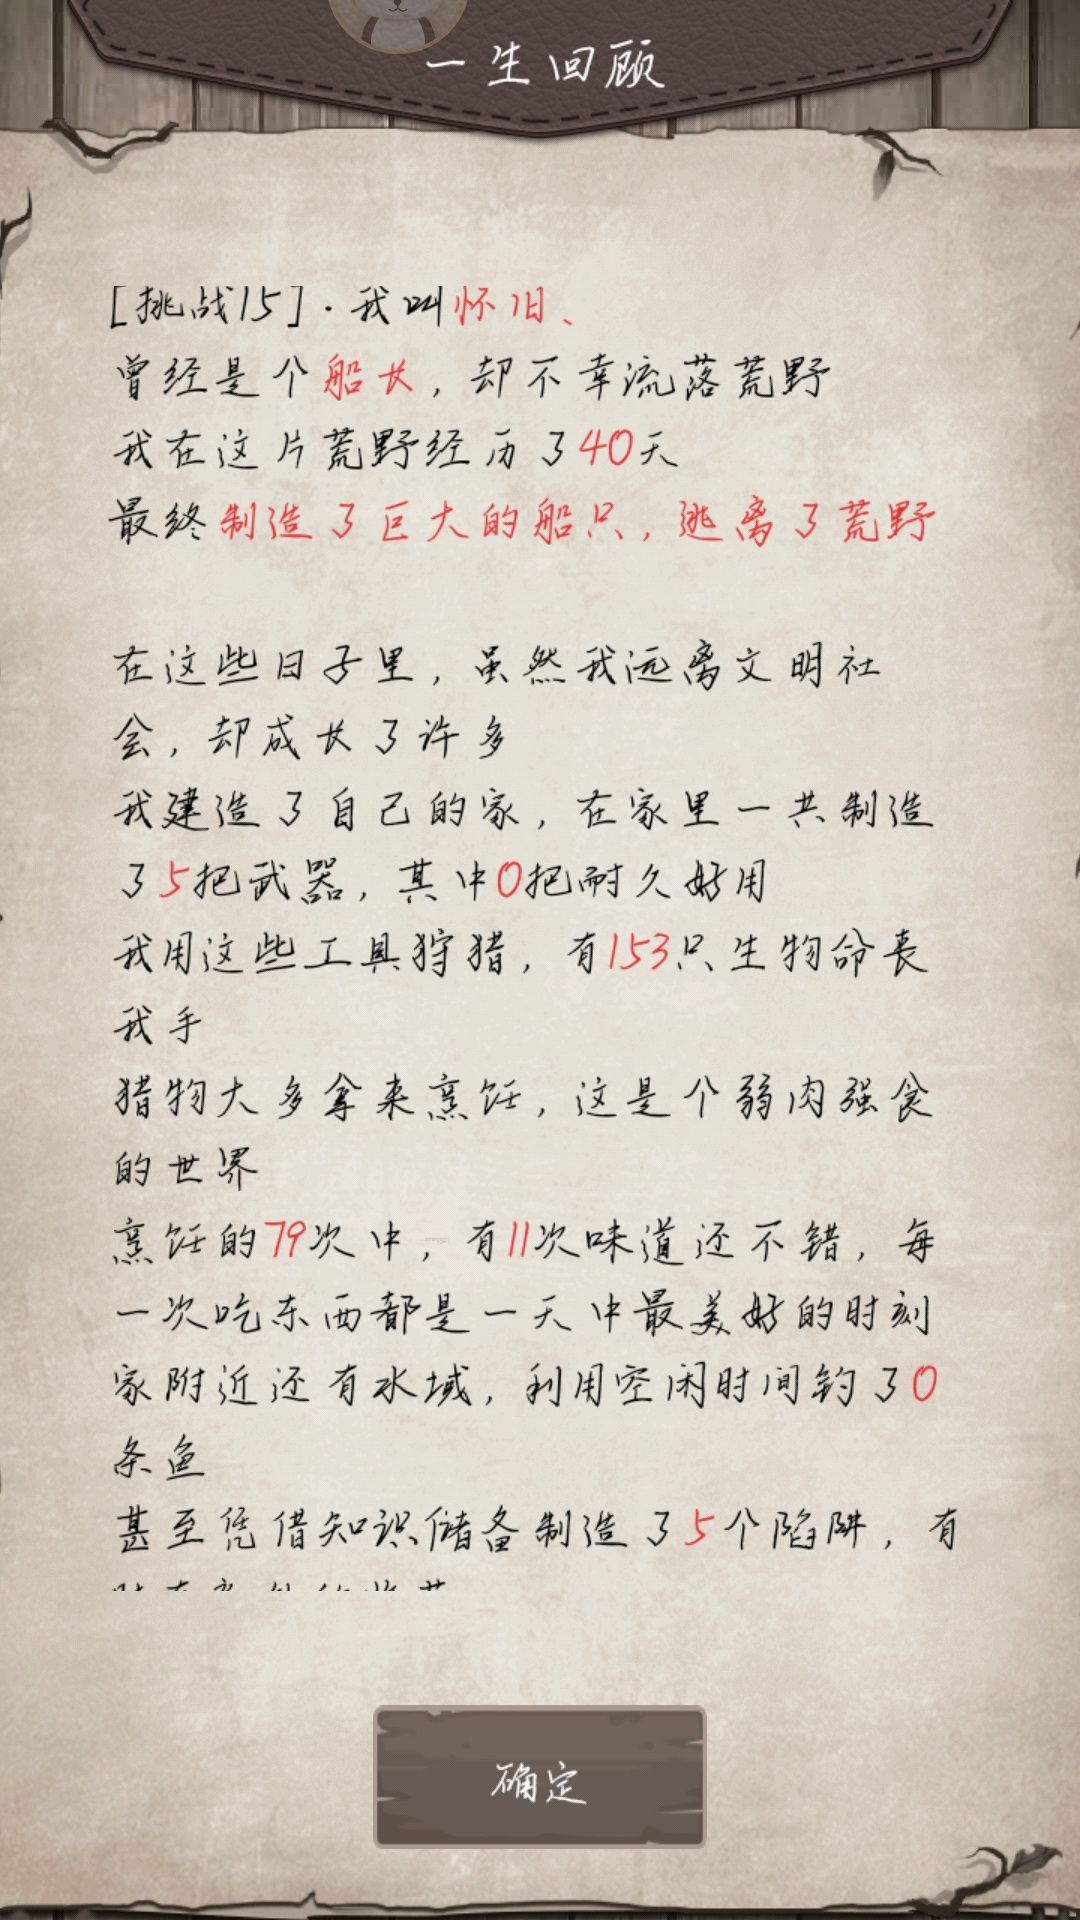 一生回顾
[挑战15]·我叫怀旧、
曾经是个船长，却不幸流落荒野
我在这片荒野经历了40天
最终制造了巨大的船只，逃离了荒野
在这些日子里，虽然我远离文明社
会，却成长了许多
我建造了自己的家，在家里一共制造
了5把武器，其中0把耐久好用
我用这些工具狩猎，有153只生物命丧
我手
猎物大多拿来烹饪，这是个弱肉强食
的世界
烹饪的79次中，有11次味道还不错，每
一次吃东西都是一天中最美好的时刻
家附近还有水域，利用空闲时间钓了0
条鱼
甚至凭借知识储备制造了5个陷阱，有
确定